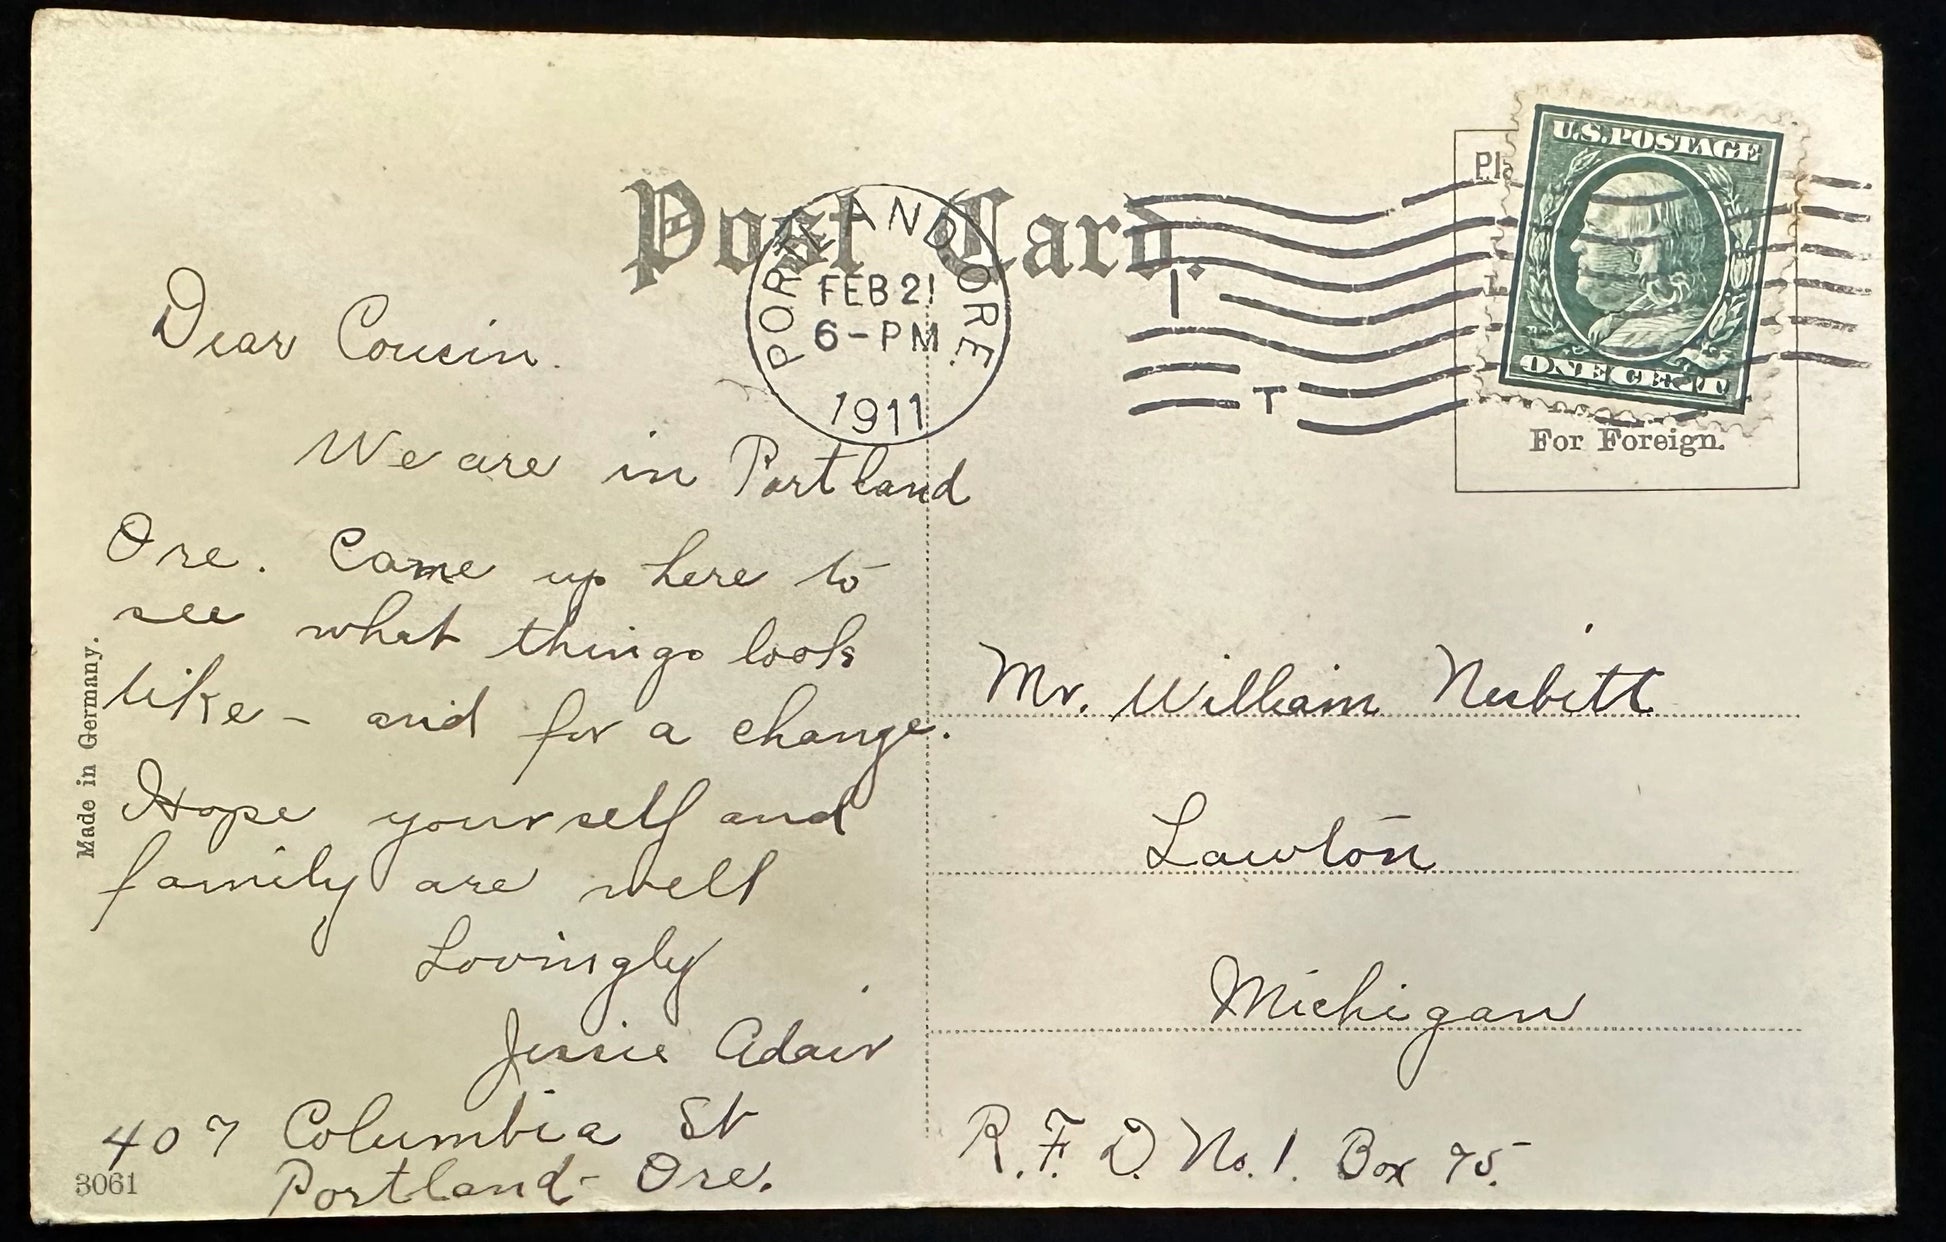 Post Card.
PORTLAND ORE.
FEB 21
6-PM
1911
U.S. POSTAGE
ONE CENT
For Foreign.
Dear Cousin.
We are in Portland
Ore. Came up here to
see what things look
like - and for a change.
Hope yourself and
family are well
Lovingly
Jessie Adair
407 Columbia St
Portland - Ore.
Mr. William Nesbitt
Lawton
Michigan
R.F.D. No. 1. Box 75.
Made in Germany.
3061